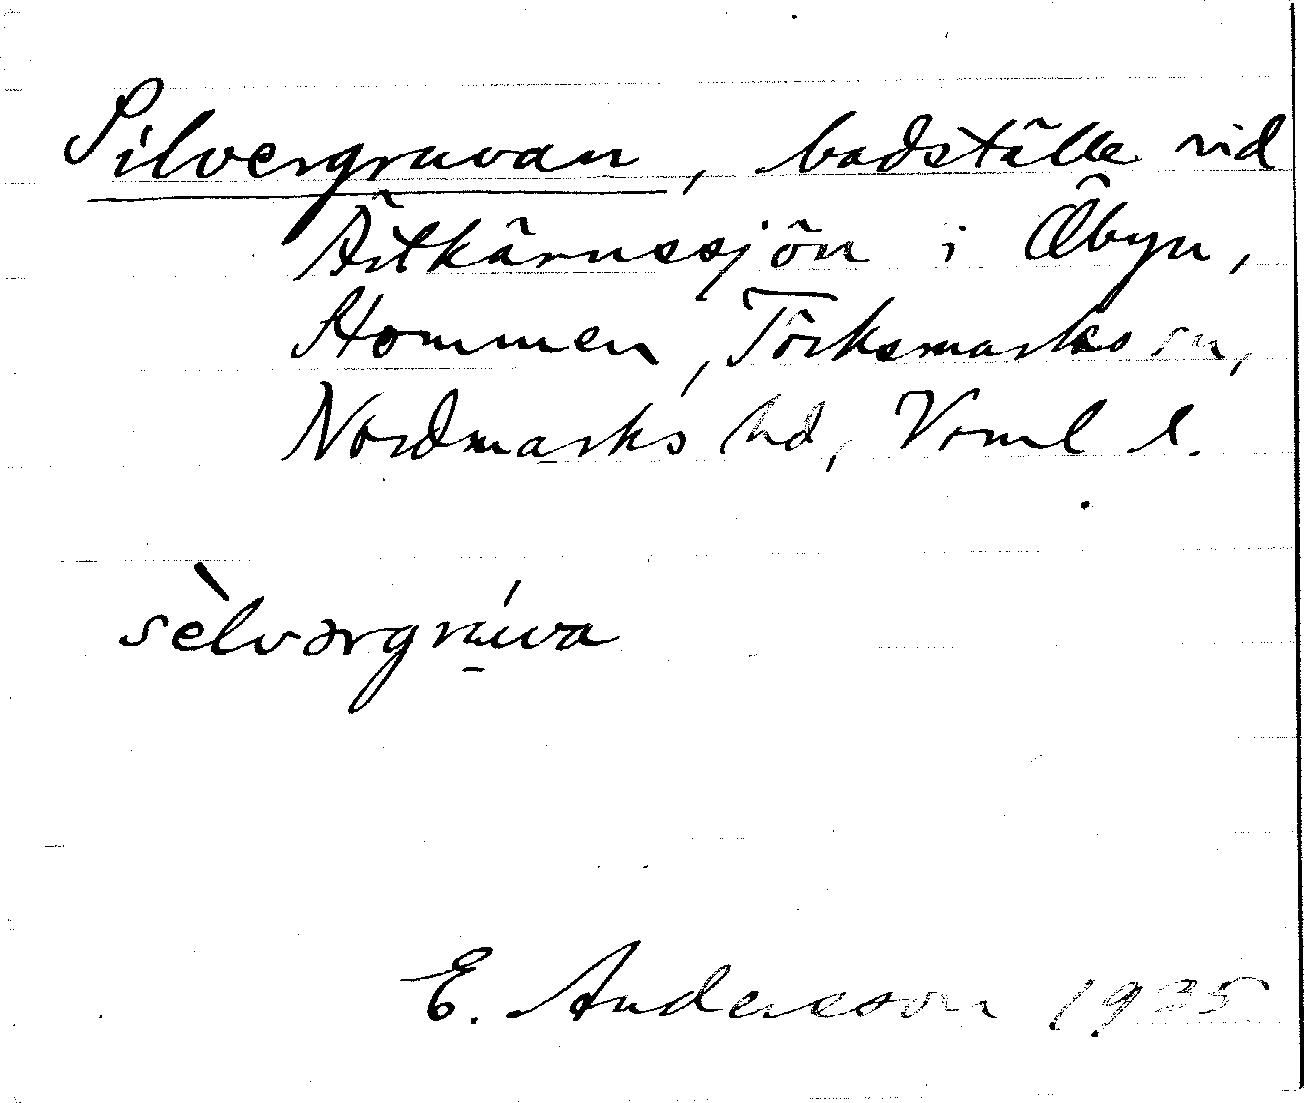 Silvergruvan, badställe vid
Ätkärnssjön i Öbyn,
Hommen, Töcksmarks sn,
Nordmarks hd, Vrml l.
sèlvərgrúva
E. Andersson 1925